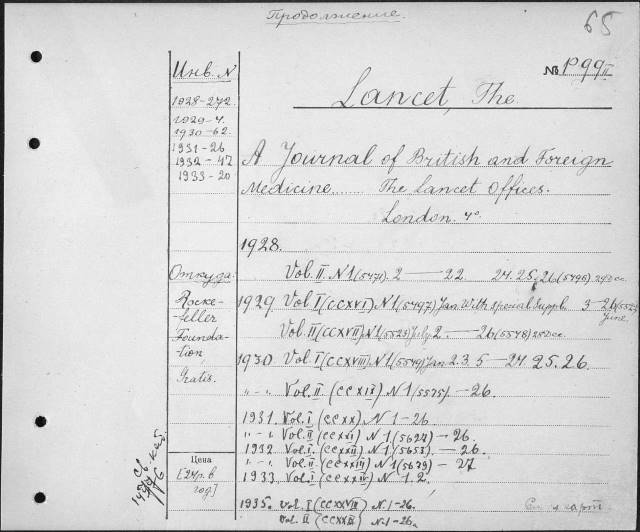 Продолжение.
65
Инв. N
No P99II
Lancet, The
1928-272
1929-7.
1930-62.
1931-26
1932-47
1933-20
A Journal of British and Foreign
Medicine...... The Lancet Offices.
London. 4°
1928.
Откуда:
Vol. II. N 1 (5471). 2 — 22. 24. 25, 26 (5496) 29 Dec.
Rocke-
feller
Founda-
tion
Gratis.
1929. Vol I (CCXVI) N 1 (5497) Jan. With special Suppl. 3 — 26 (5522) June
Vol. II (CCXVII) N 1 (5523) July 2. — 26 (5548) 28 Dec.
1930. Vol. I (CCXVIII) N 1 (5549) Jan 2. 3. 5 — 24. 25. 26.
"-"- Vol. II (CCXIX) N 1 (5575) - 26.
1931. Vol. I (CCXX) N 1-26.
"-"- Vol. II (CCXXI) N 1 (5627) - 26.
1932. Vol. I (CCXXII) N 1 (5653). - 26.
"-"- Vol. II (CCXXIII) N 1 (5679) - 27
1933. Vol. I (CCXXIV) N 1. 2.
Цена
[24р. в
год]
1935. Vol. I (CCXXVIII) N. 1-26.
Vol. II (CCXXIX) N. 1-26.
См. 4 карт.